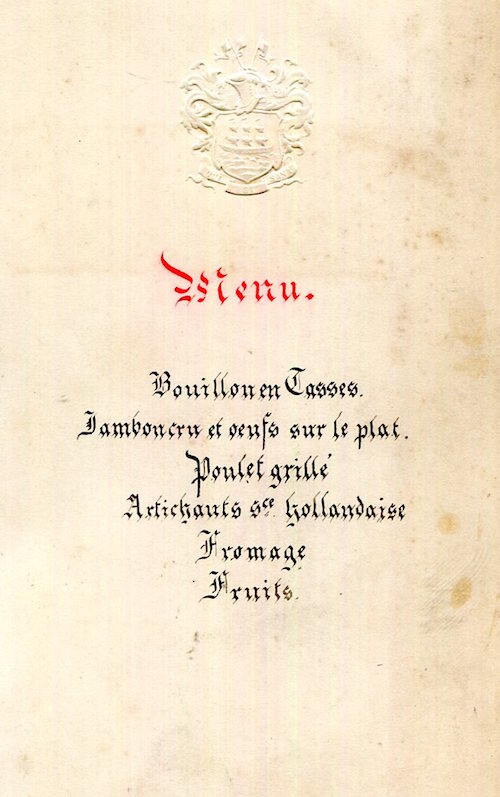 Menu.
Bouillon en Tasses.
Jambon cru et oeufs sur le plat.
Poulet grillé
Artichauts sce. hollandaise
Fromage
Fruits.